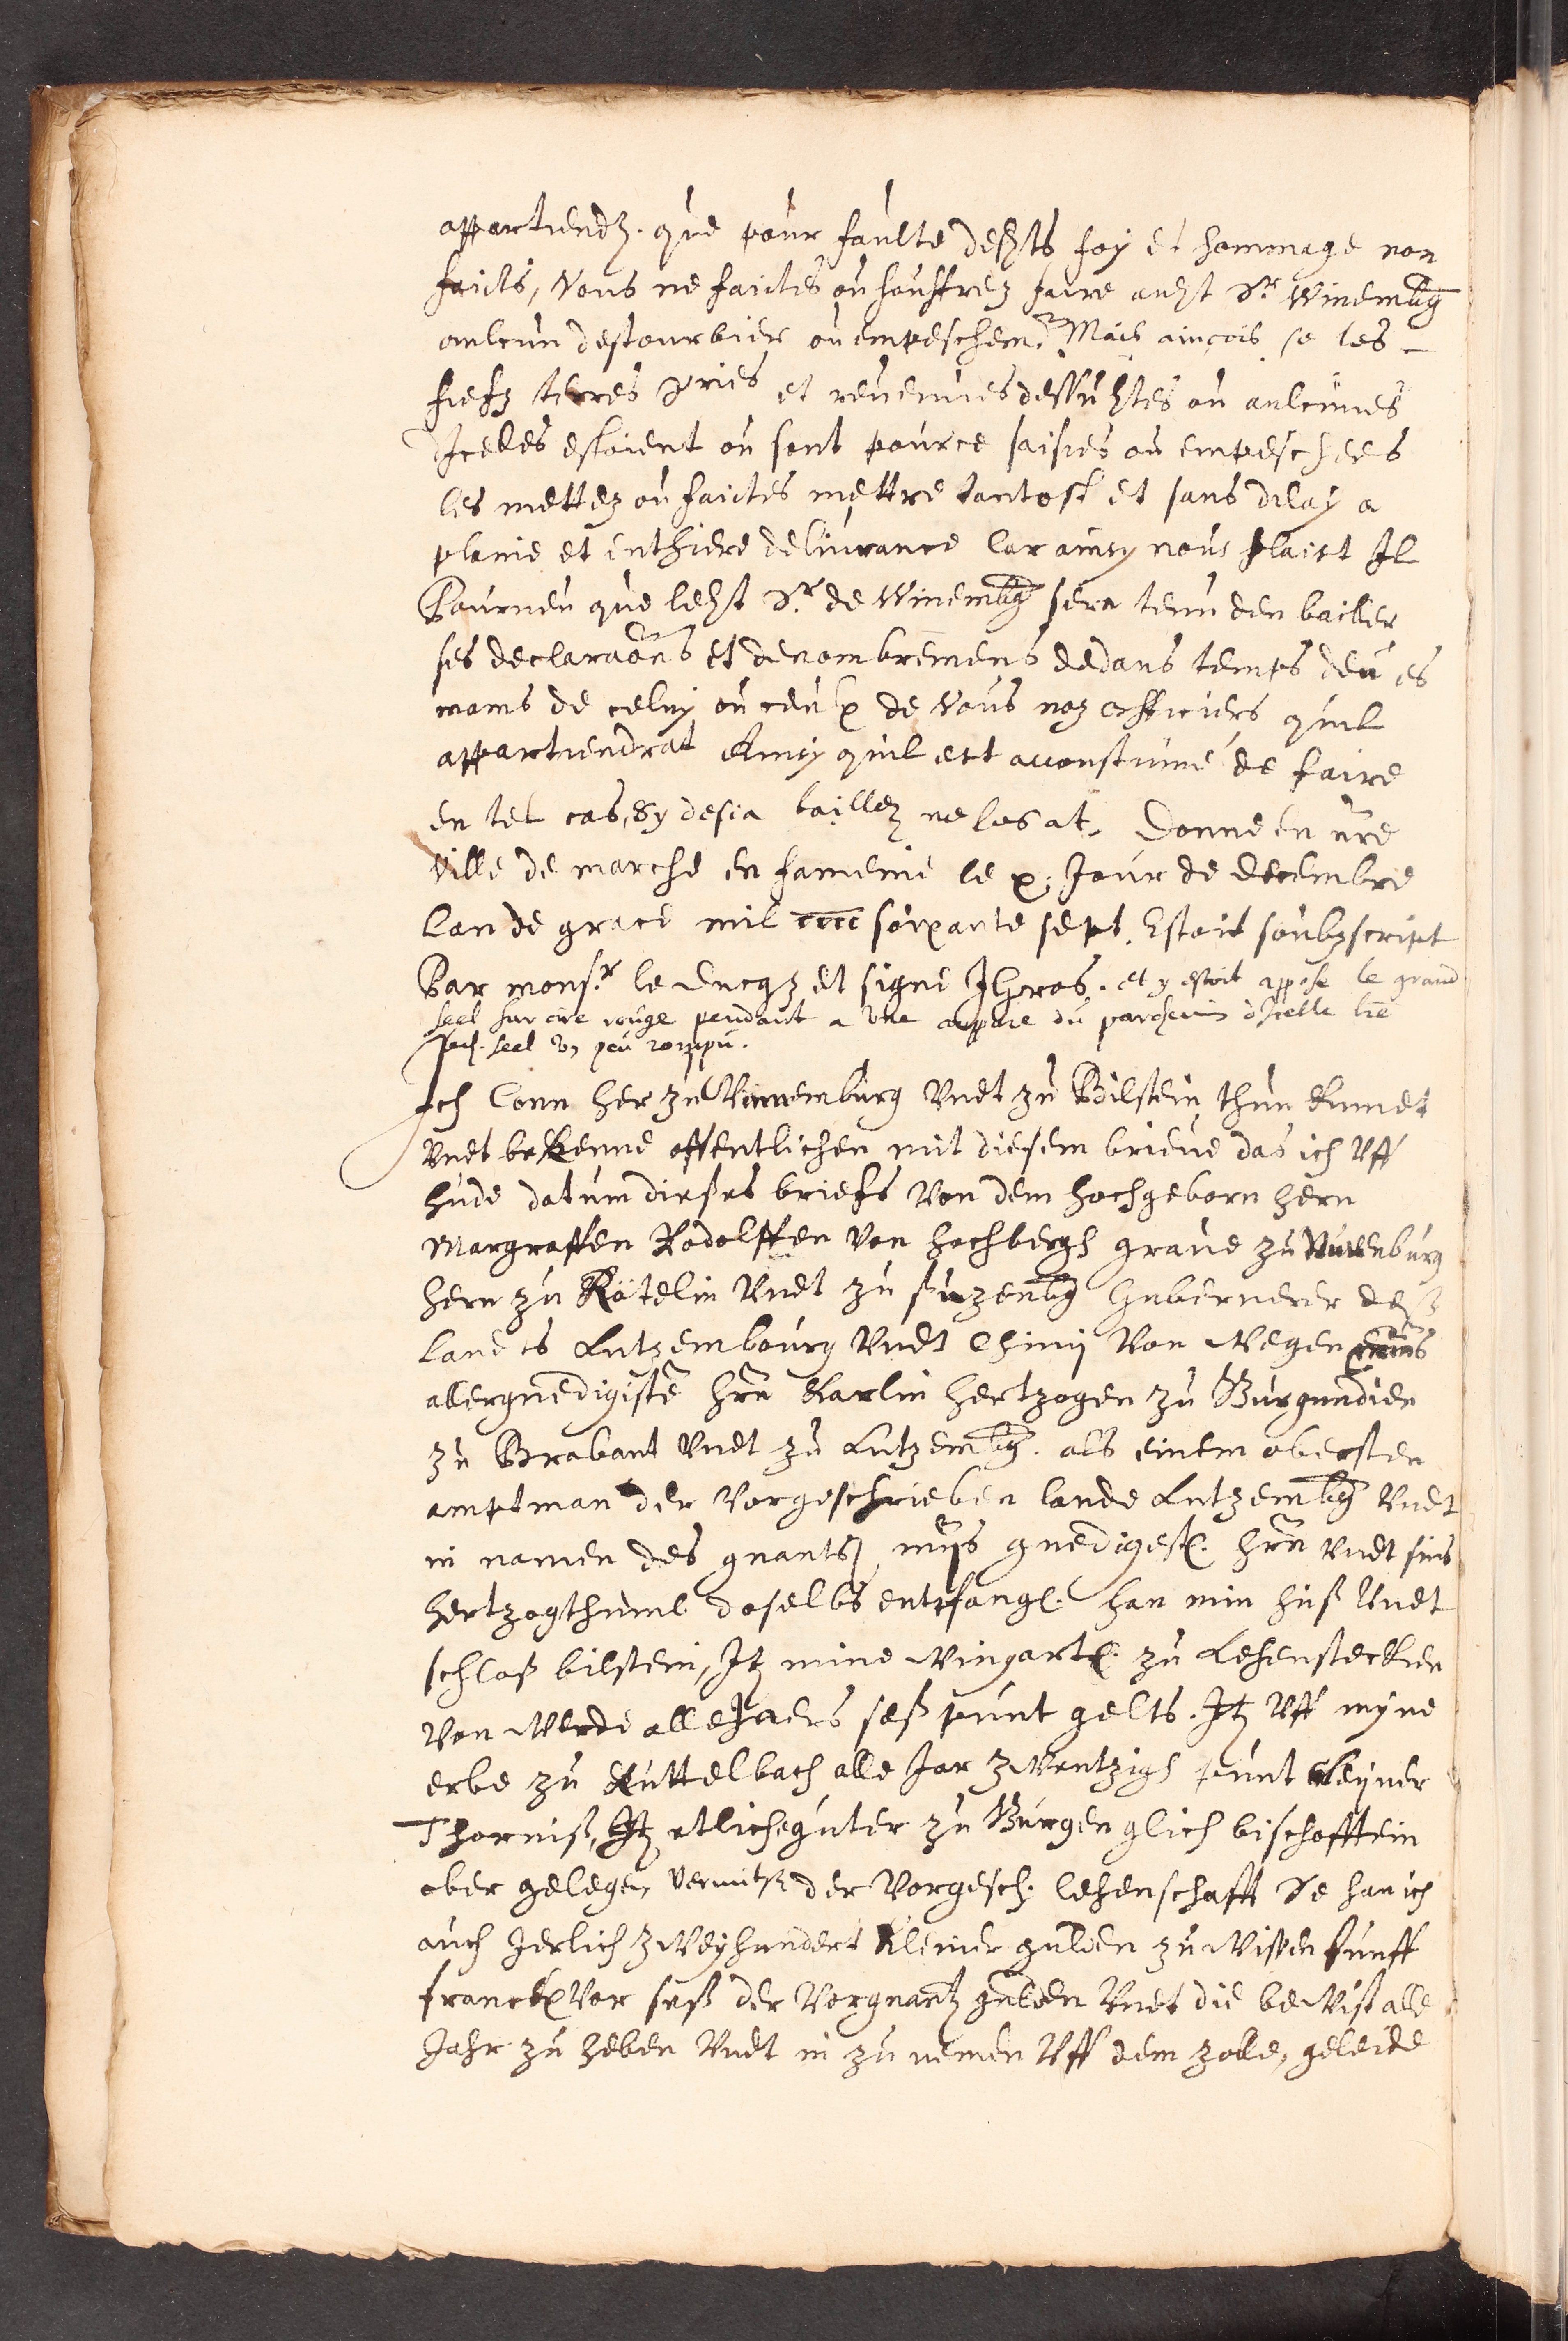 appartiendz. que pour faulte deszts foy et hommage non
faicts, Vous ne faictes ou souffrez faire auzt Sr. Winembg
aulcun destourbier ou empeschem. Mais ainçois se les
fiefz terres Sries et reuenues dessuztes ou aulcunes
Jcelles estoient ou sont pource saisies ou empeschees
les mettez ou faictes mettre tantost et sans delay a
plaine et enthiere deliurance Car ainsy nous plaist Jl
Pourueu que lezt Sr. de Winembg sera tenu den bailler
ses declaraōns et denombremens dedans temps deu es
mains de celuy ou ceulx de Vous noz officiers quil
appartiendrat Ainsy quil est accoustumé de faire
en tel cas, Sy desia baillez ne les at. Donne en nre
ville de marche en famenne le x. Jour de decembre
Lan de grace mil cccc soixante sept. Estoit soubzscript
Par monsr. le ducqz et signe J Gros. et y estoit appose le grand
seel sur cire rouge pendant a vne du parchemin dJcelle lre
seel vn peu rompu.
Jch Conn her zu Winnemburg Vndt zu Bilstein thun Kundt
Vndt bekenne offentlichen mit diesem brieue das ich Vff
hude datum dieses briefs Von dem hochgeborn hern
Margraffen Rodolffen Von hochbergh graue zu Nuwenburg
hern zu Rötelin Vndt zu suzenbg Gubernerer deß
landts Lutzembourg Vndt Chinij Von Wegen
allergnedigistē hrn Karlin hertzogen zu Burgundien
zu Brabant Vndt zu Lutzembg. als einem obersten
amptman der Vorgeschrieben lande Lutzembg Vndt
in namen des gnants mijs gnedigest. hrn Vndt sins
hertzogthumb daselbs entpfang. han min huß Vndt
schloß bilstein, Jtz mine Wingart. zu Lehensterkien
Von Werde alle Jaers seß punt gelts. Jtz Vff myne
erbe zu Kuttelbach alle Jar zWentzigh punt kleyner
Thorniß, Jtz etliche guter zu Burgen glich bischofftein
ober gelegen, der Vorgesch. lehenschafft So han ich
auch Jerlich zWeyhundert Kleiner gulden zu Wissen funff
franck Vor seß der Vorgnantz gulden Vndt die beWist alle
Jahr zu heben Vndt in zu nemen Vff dem zolle, geleide